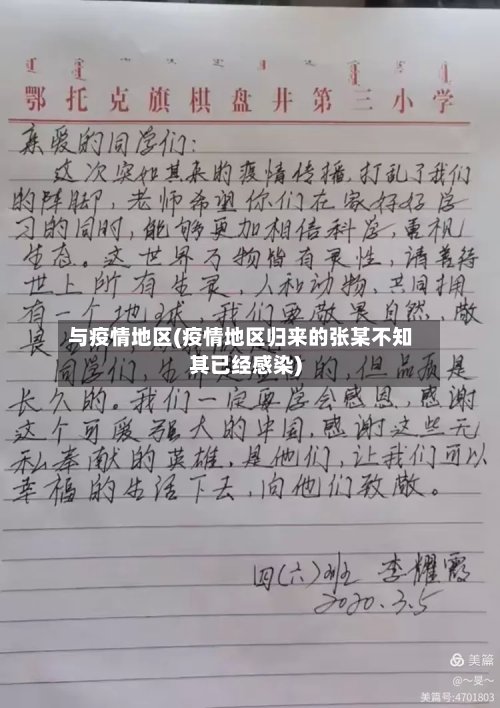 鄂托克旗棋盘井第三小学
亲爱的同学们:
这次突如其来的疫情传播,打乱了我们
的阵脚,老师希望你们在家好好学
习的同时,能够更加相信科学,重视
生态。这世界万物皆有灵性,请善待
世上所有生灵,人和动物,共同拥
有一个地球,我们要敬畏自然,敬
畏生
与疫情地区(疫情地区归来的张某不知
其已经感染)
同学们,生命是 的,但品质是
长久的。我们一定要学会感恩,感谢
这个可爱强大的中国,感谢这些无
私奉献的英雄,是他们,让我们可以
幸福的生活下去,向他们致敬。
四(六)班 李耀霞
2020.3.5
美篇
@~旻~
美篇号:4701803